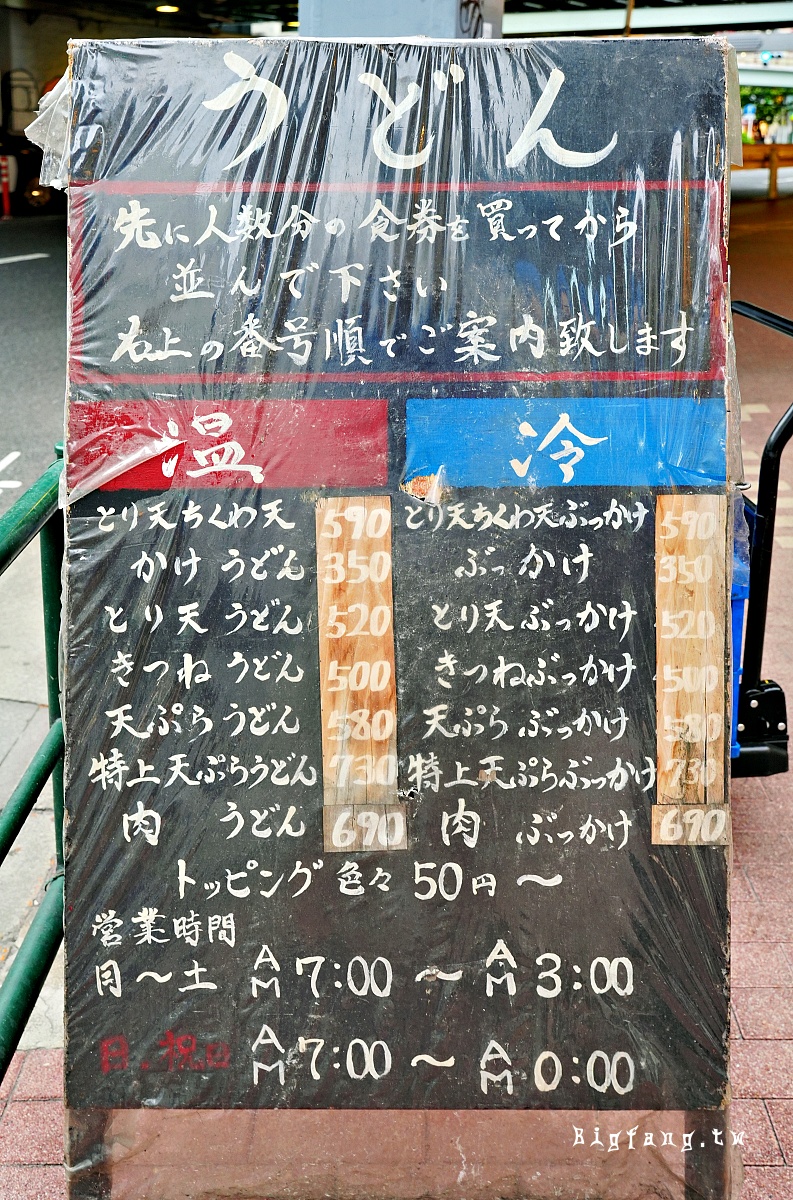 うどん
先に人数分の食券を買ってから
並んで下さい
右上の番号順でご案内致します
温 冷
とり天ちくわ天 590 とり天ちくわ天ぶっかけ 590
かけうどん 350 ぶっかけ 350
とり天うどん 520 とり天ぶっかけ 520
きつねうどん 500 きつねぶっかけ 500
天ぷらうどん 580 天ぷらぶっかけ 580
特上天ぷらうどん 730 特上天ぷらぶっかけ 730
肉うどん 690 肉ぶっかけ 690
トッピング色々50円〜
営業時間
月〜土 AM7:00〜AM3:00
日.祝日 AM7:00〜AM0:00
Bigfang.tw